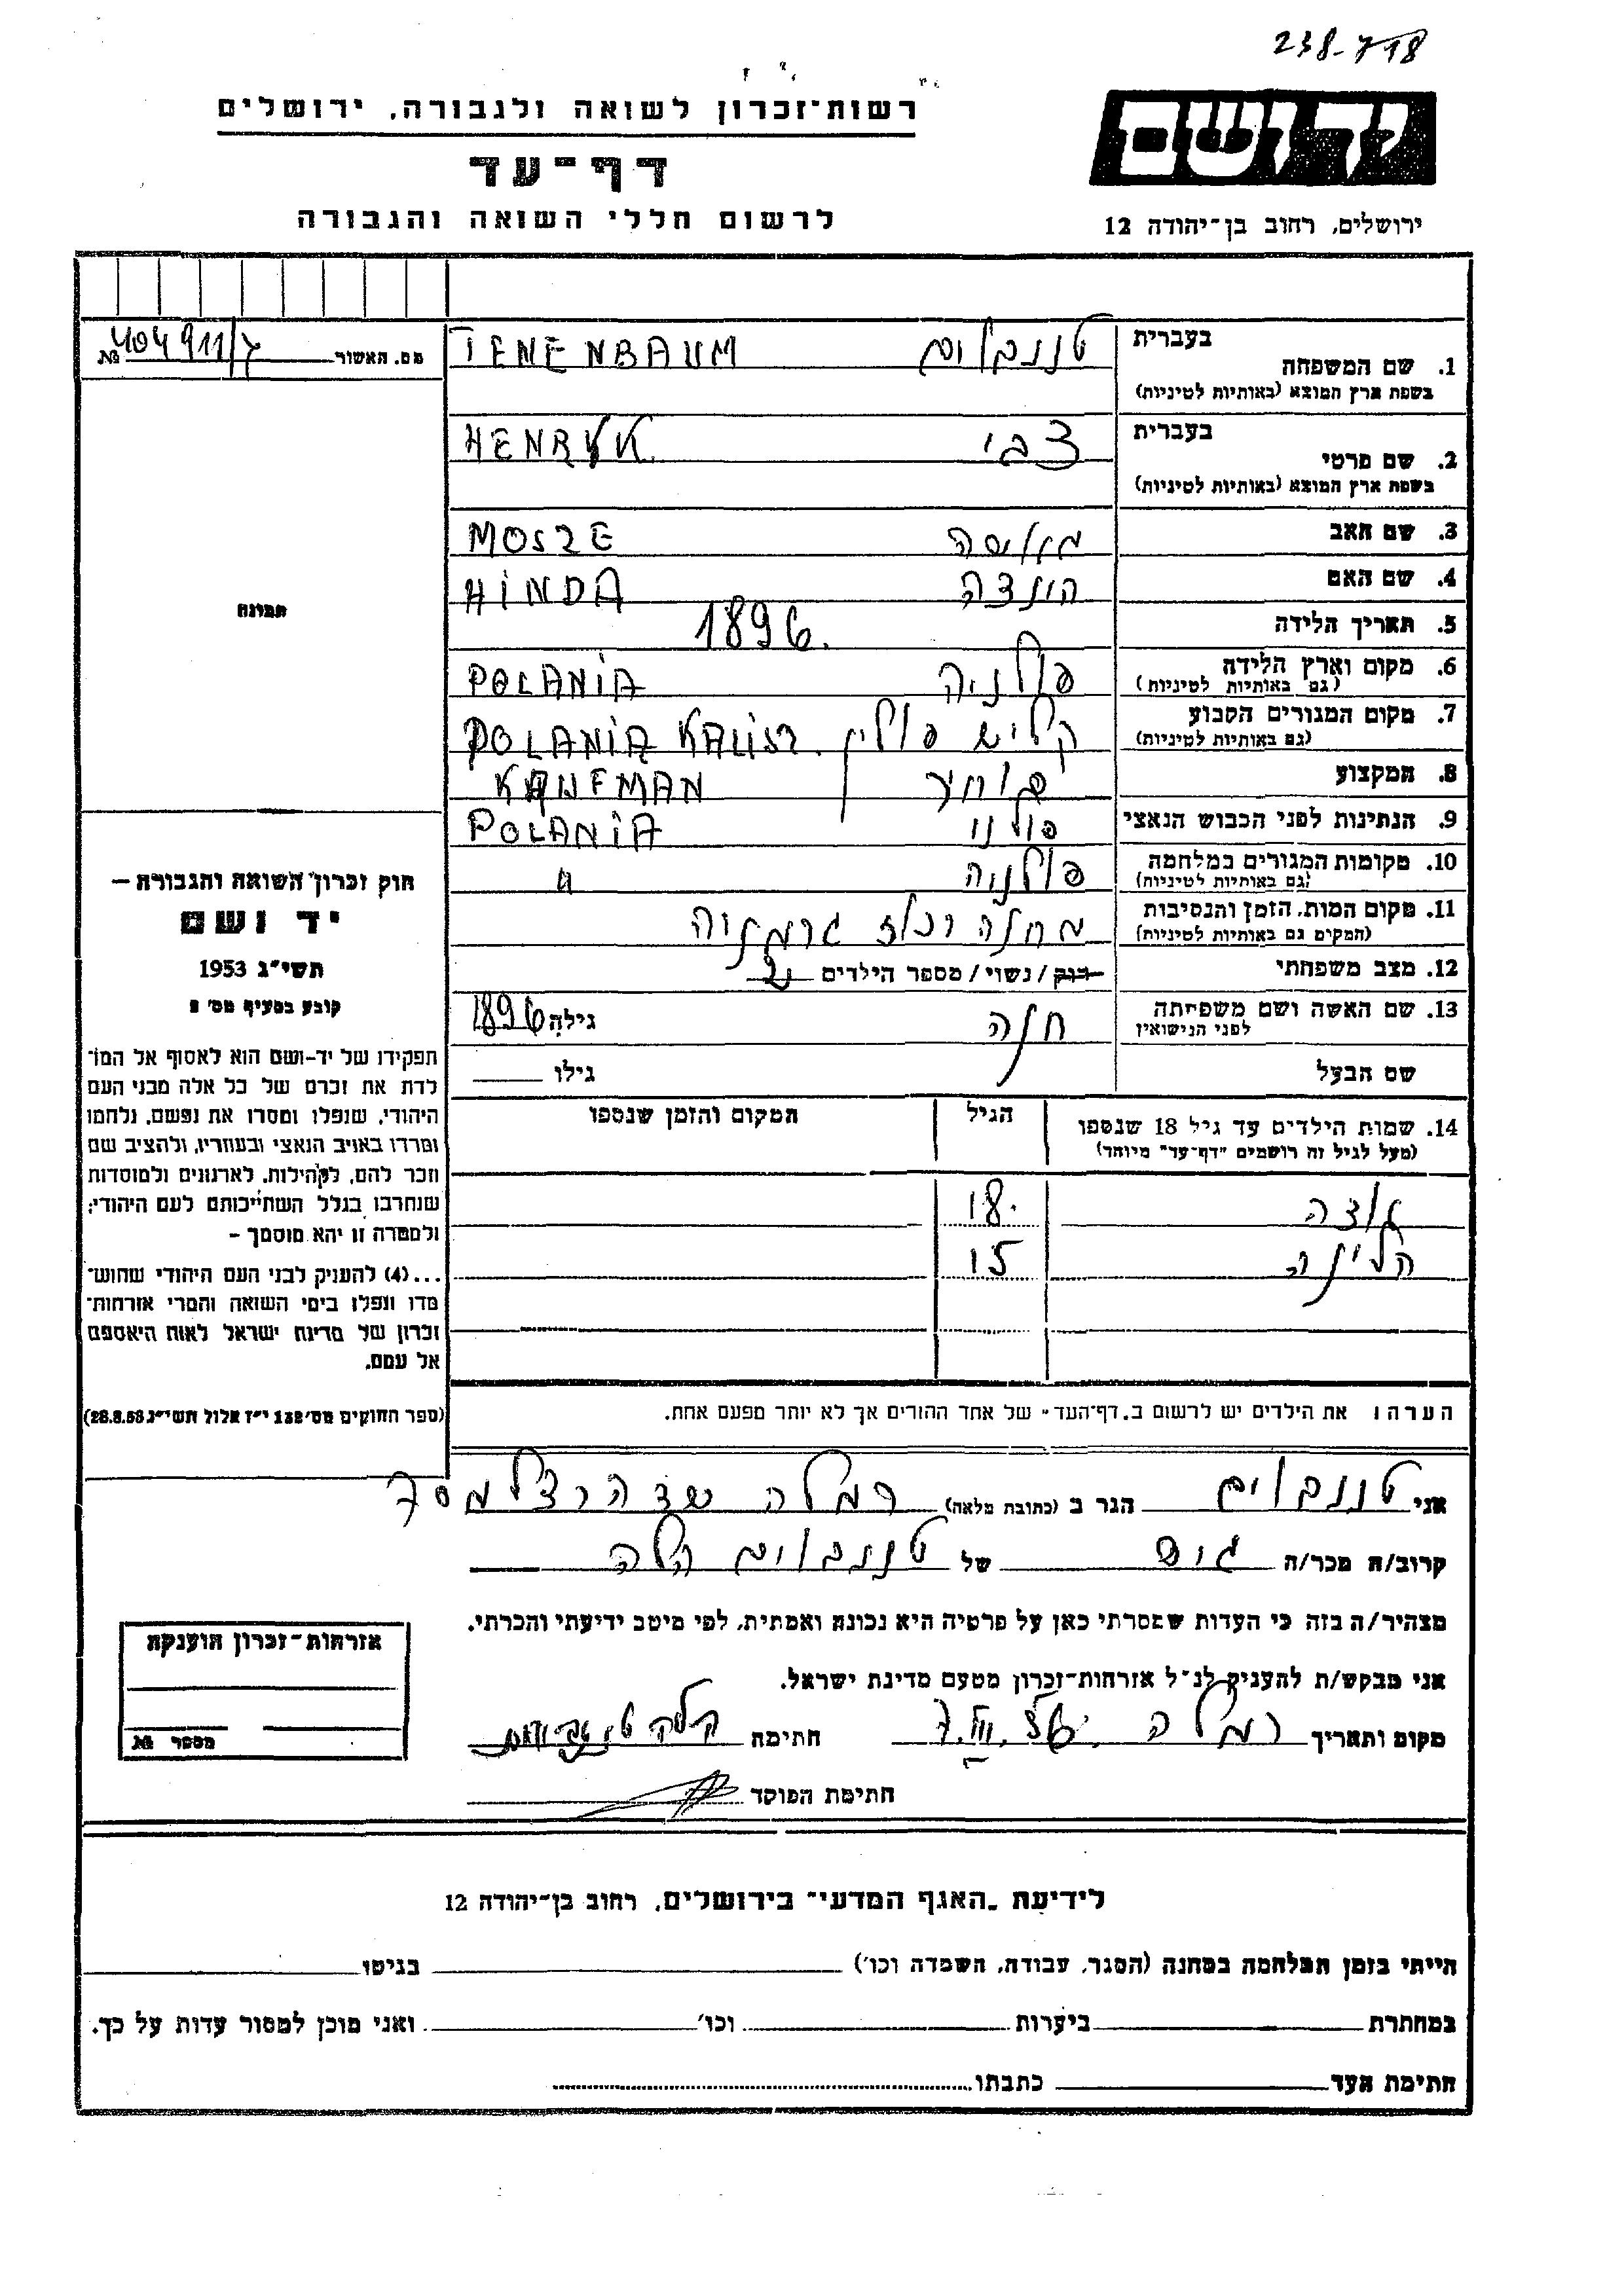 238-718
רשות־זכרון לשואה ולגבורה, ירושלים
דף־עד
לרשום חללי השואה והגבורה
ידושם
ירושלים, רחוב בן־יהודה 12
מס. האשור № 404911/7
בעברית
1. שם המשפחה
(בשפת ארץ המוצא (באותיות לטיניות
טננבוים TENENBAUM
בעברית
2. שם פרטי
(בשפת ארץ המוצא (באותיות לטיניות
צבי HENRYK
3. שם האב מוישה MOSZE
4. שם האם הינדה HINDA
5. תאריך הלידה 1896.
6. מקום וארץ הלידה פולניה POLANIA
(גם באותיות לטיניות)
7. מקום המגורים הקבוע קליש פולין POLANIA KALISZ.
(גם באותיות לטיניות)
8. המקצוע סוחר
9. הנתינות לפני הכבוש הנאצי פולני POLANIA
10. מקומות המגורים במלחמה פולניה "
(גם באותיות לטיניות)
11. מקום המות, הזמן והנסיבות מחנה גרמניה
(המקום גם באותיות לטיניות)
12. מצב משפחתי רווק/נשוי/מספר הילדים 2
13. שם האשה ושם משפחתה חנה גילה 1896
לפני הנישואין
שם הבעל גילו
14. שמות הילדים עד גיל 18 שנספו הגיל המקום והזמן שנספו
(מעל לגיל זה רושמים "דף־עד" מיוחד)
18.
הלינה 15
הערה: את הילדים יש לרשום ב"דף־העד" של אחד ההורים אך לא יותר מפעם אחת.
תמונה
חוק זכרון השואה והגבורה —
יד ושם
תשי"ג 1953
קובע בסעיף מס' 2
תפקידו של יד-ושם הוא לאסוף אל המו־
לדת את זכרם של כל אלה מבני העם
היהודי, שנפלו ומסרו את נפשם, נלחמו
ומרדו באויב הנאצי ובעוזריו, ולהציב שם
וזכר להם, לקהילות, לארגונים ולמוסדות
שנחרבו בגלל השתייכותם לעם היהודי;
ולמטרה זו יהא מוסמך -
...(4) להעניק לבני העם היהודי שהוש־
מדו ונפלו בימי השואה והמרי אזרחות־
זכרון של מדינת ישראל לאות היאספם
אל עמם.
(ספר החוקים מס' 132 י"ז אלול תשי"ג 28.8.53)
אני טננבוים הגר ב (כתובת מלאה) רמלה שד הרצל
קרוב/ה מכר/ה גיס של טננבוים הלה
מצהיר/ה בזה כי העדות שמסרתי כאן על פרטיה היא נכונה ואמתית, לפי מיטב ידיעתי והכרתי.
אני מבקש/ת להעניק לנ"ל אזרחות־זכרון מטעם מדינת ישראל.
מקום ותאריך רמלה חתימה הלה טננבוים
חתימת הפוקד
אזרחות־זכרון הוענקה
מספר №
לידיעת "האגף המדעי" בירושלים, רחוב בן־יהודה 12
הייתי בזמן המלחמה במחנה (הסגר, עבודה, השמדה וכו') בגיטו
במחתרת ביערות וכו' ואני מוכן למסור עדות על כך.
חתימת העד כתבתו